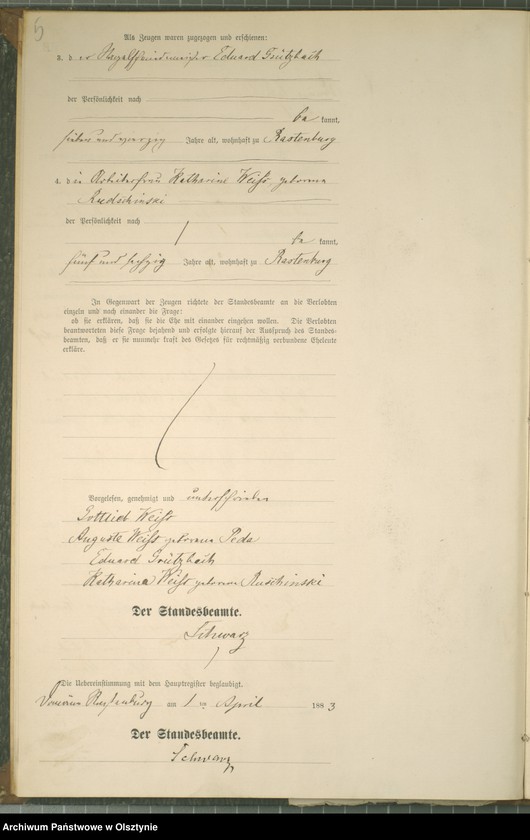 5
Als Zeugen waren zugezogen und erschienen:
3. d er Eduard Grützbach
der Persönlichkeit nach
be kannt,
sieben und vierzig Jahre alt, wohnhaft zu Rastenburg
4. d ie Arbeiterfrau Katharine Weiß, geborene
der Persönlichkeit nach
be kannt,
fünf und sechzig Jahre alt, wohnhaft zu Rastenburg
In Gegenwart der Zeugen richtete der Standesbeamte an die Verlobten
einzeln und nach einander die Frage:
ob sie erklären, daß sie die Ehe mit einander eingehen wollen. Die Verlobten
beantworteten diese Frage bejahend und erfolgte hierauf der Ausspruch des Standes-
beamten, daß er sie nunmehr kraft des Gesetzes für rechtmäßig verbundene Eheleute
erkläre.
Vorgelesen, genehmigt und unterschrieben
Gottlieb Weiß
Auguste Weiß geborene Peda
Eduard Grützbach
Katharina Weiß geborene Ruschinski
Der Standesbeamte.
Schwarz
Die Uebereinstimmung mit dem Hauptregister beglaubigt.
am 1 ten April 1883
Der Standesbeamte.
Schwarz
Archiwum Państwowe w Olsztynie